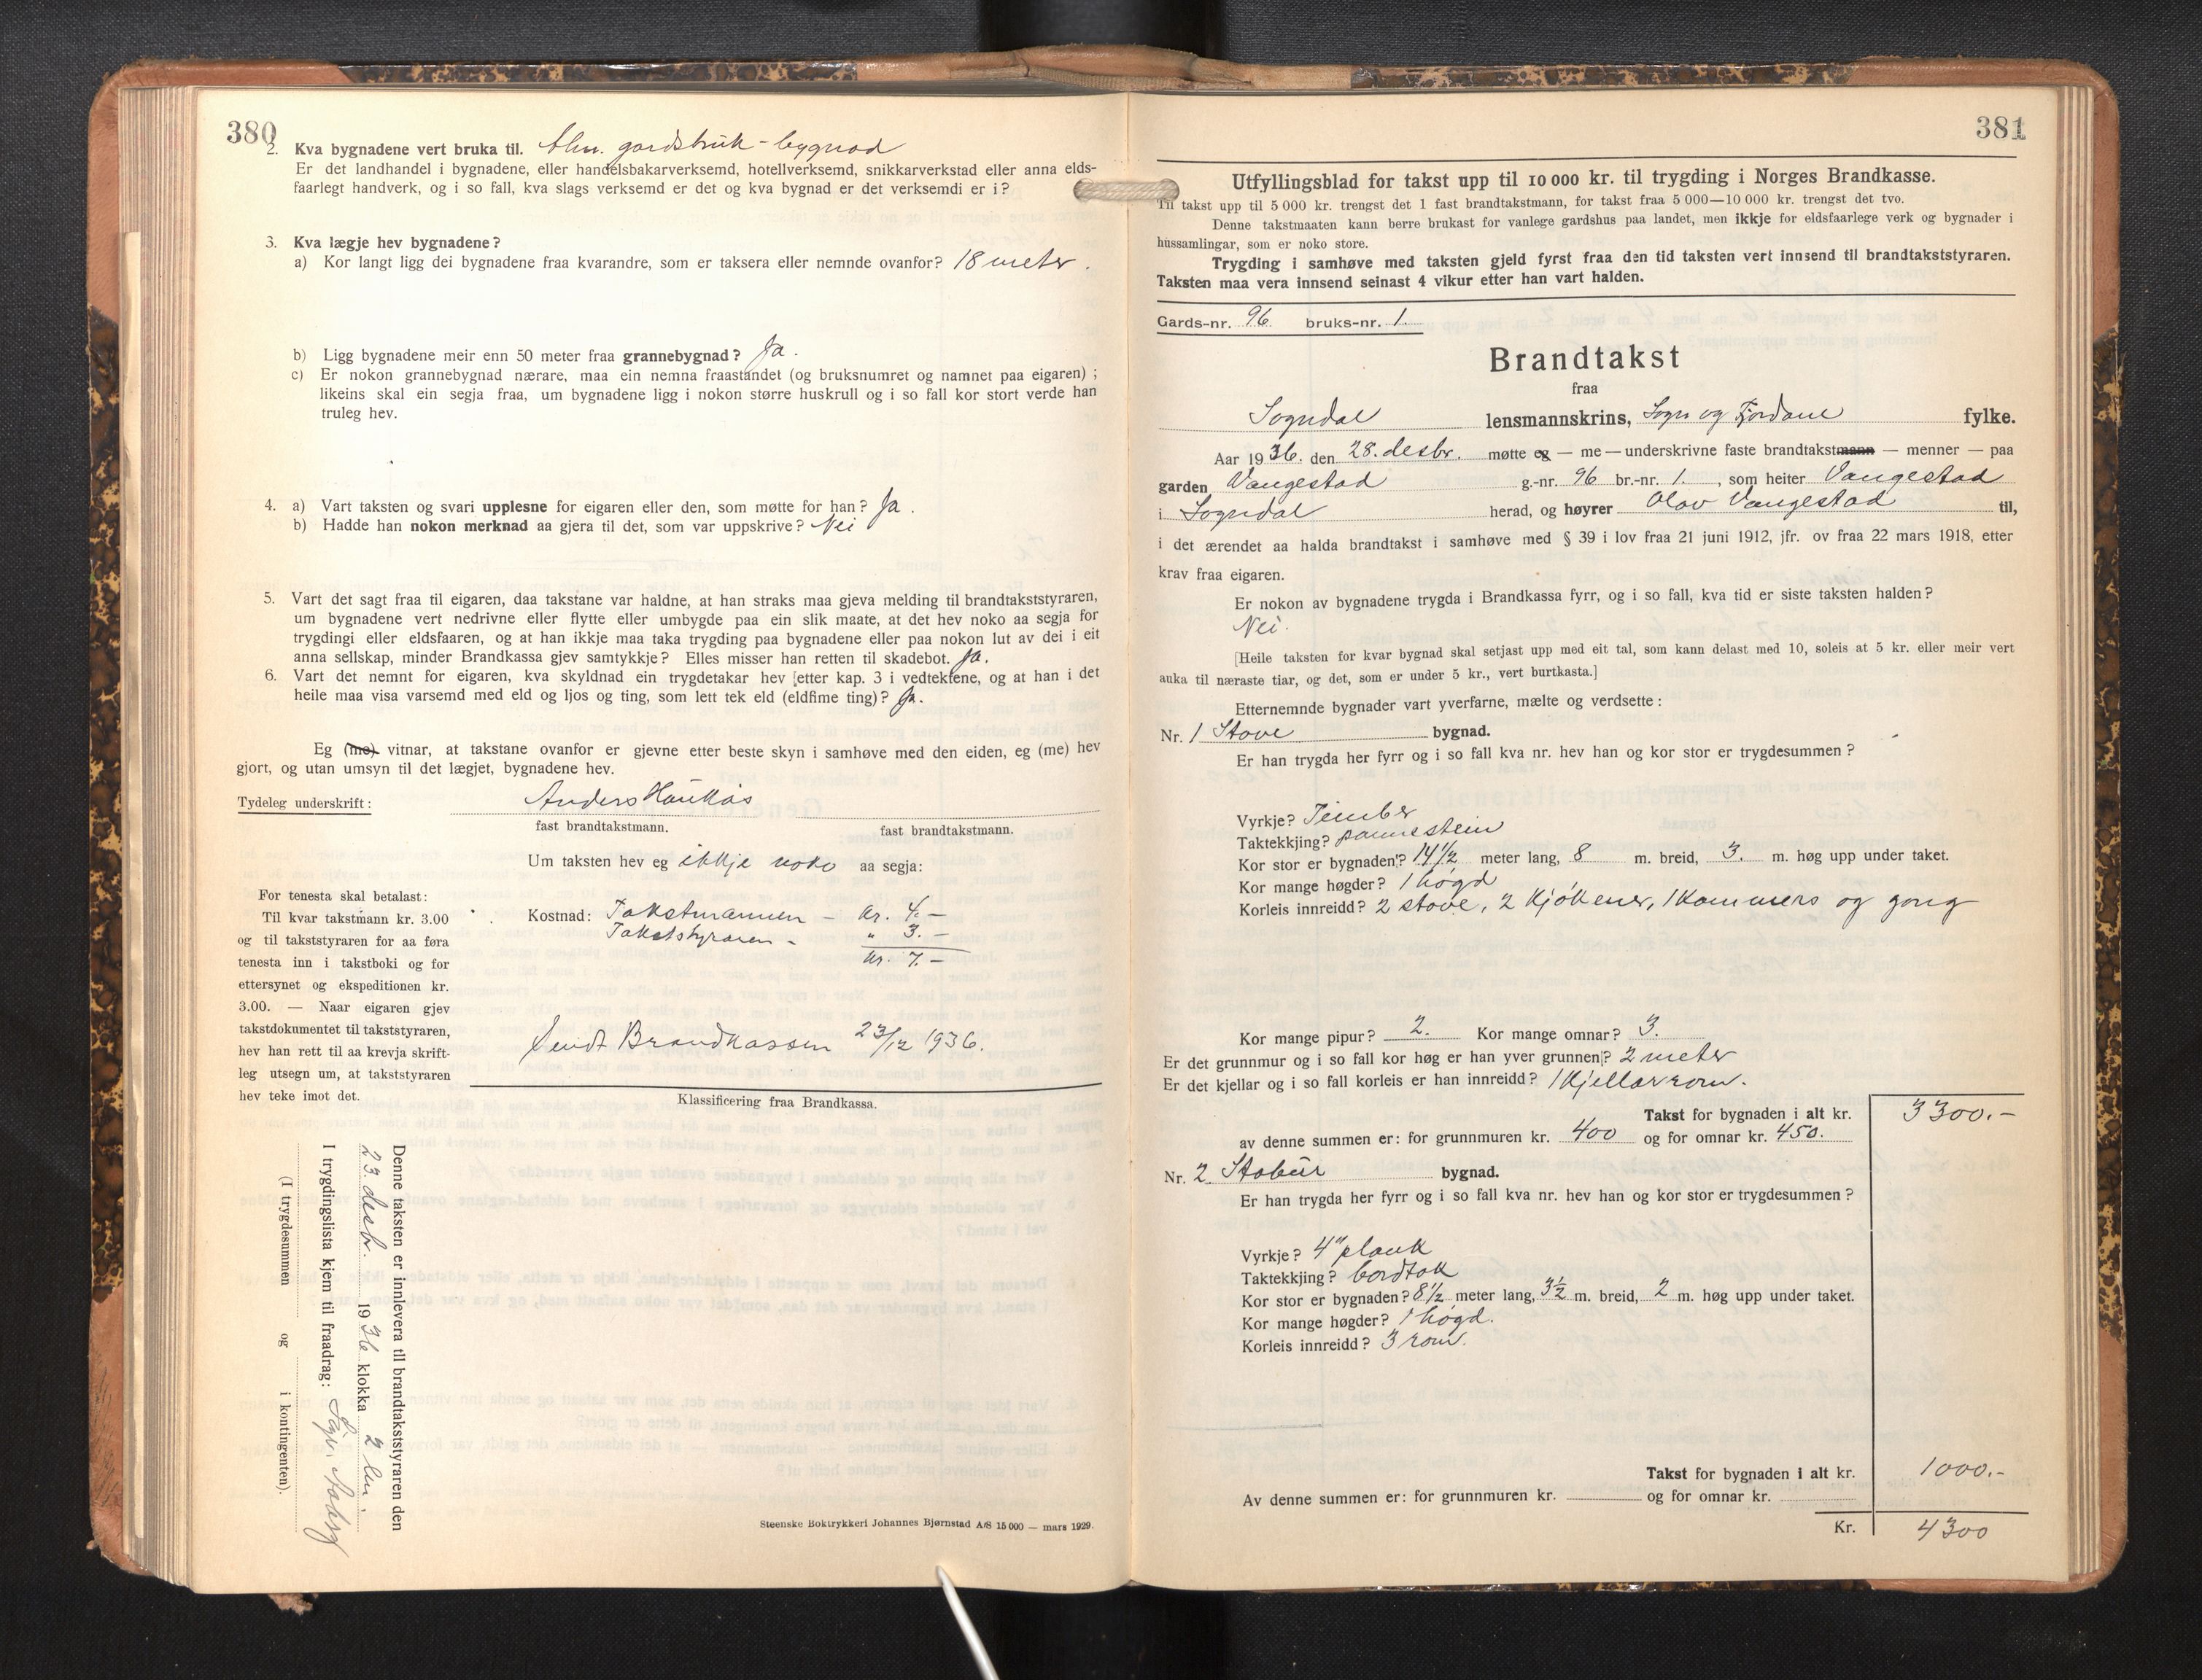 380
2. Kva bygnadene vert bruka til. Alm. gardsbruk-bygnad
Er det landhandel i bygnadene, eller handelsbakarverksemd, hotellverksemd, snikkarverkstad eller anna elds-
faarlegt handverk, og i so fall, kva slags verksemd er det og kva bygnad er det verksemdi er i?
3. Kva lægje hev bygnadene?
a) Kor langt ligg dei bygnadene fraa kvarandre, som er taksera eller nemnde ovanfor? 18 meter.
b) Ligg bygnadene meir enn 50 meter fraa grannebygnad? Ja.
c) Er nokon grannebygnad nærare, maa ein nemna fraastandet (og bruksnumret og namnet paa eigaren);
likeins skal ein segja fraa, um bygnadene ligg i nokon større huskrull og i so fall kor stort verde han
truleg hev.
4. a) Vart taksten og svari upplesne for eigaren eller den, som møtte for han? Ja.
b) Hadde han nokon merknad aa gjera til det, som var uppskrive? Nei
5. Vart det sagt fraa til eigaren, daa takstane var haldne, at han straks maa gjeva melding til brandtakststyraren,
um bygnadene vert nedrivne eller flytte eller umbygde paa ein slik maate, at det hev noko aa segja for
trygdingi eller eldsfaaren, og at han ikkje maa taka trygding paa bygnadene eller paa nokon lut av dei i eit
anna sellskap, minder Brandkassa gjev samtykkje? Elles misser han retten til skadebot. Ja.
6. Vart det nemnt for eigaren, kva skyldnad ein trygdetakar hev etter kap. 3 i vedtektene, og at han i det
heile maa visa varsemd med eld og ljos og ting, som lett tek eld (eldfime ting)? Ja.
Eg (me) vitnar, at takstane ovanfor er gjevne etter beste skyn i samhøve med den eiden, eg (me) hev
gjort, og utan umsyn til det lægjet, bygnadene hev.
Tydeleg underskrift: Anders Haukås
fast brandtakstmann. fast brandtakstmann.
Um taksten hev eg ikkje noko aa segja:
For tenesta skal betalast:
Til kvar takstmann kr. 3.00
og til takststyraren for aa føra
tenesta inn i takstboki og for
ettersynet og ekspeditionen kr.
3.00. — Naar eigaren gjev
takstdokumentet til takststyraren,
hev han rett til aa krevja skrift-
leg utsegn um, at takststyraren
hev teke imot det.
Kostnad: Takstmannen - kr. 4.-
Takststyraren - " 3.-
kr. 7.-
Sendt Brandkassen 23/12 1936.
Klassificering fraa Brandkassa.
Denne taksten er innlevera til brandtakststyraren den
23 desbr. 1936 klokka 2 em.
I trygdingslista kjem til fraadrag:
(I trygdesummen og i kontingenten).
Steenske Boktrykkeri Johannes Bjørnstad A/S 15 000 — mars 1929.
381
Utfyllingsblad for takst upp til 10 000 kr. til trygding i Norges Brandkasse.
Til takst upp til 5 000 kr. trengst det 1 fast brandtakstmann, for takst fraa 5 000—10 000 kr. trengst det tvo.
Denne takstmaaten kann berre brukast for vanlege gardshus paa landet, men ikkje for eldsfaarlege verk og bygnader i
hussamlingar, som er noko store.
Trygding i samhøve med taksten gjeld fyrst fraa den tid taksten vert innsend til brandtakststyraren.
Taksten maa vera innsend seinast 4 vikur etter han vart halden.
Gards-nr. 96. bruks-nr. 1.
Brandtakst
fraa
Sogndal lensmannskrins, Sogn og Fjordane fylke.
Aar 1936. den 28. desbr. møtte eg — me — underskrivne faste brandtakstmann — menner — paa
garden Vangestad g.-nr. 96 br.-nr. 1., som heiter Vangestad
i Sogndal herad, og høyrer Olav Vangestad til,
i det ærendet aa halda brandtakst i samhøve med § 39 i lov fraa 21 juni 1912, jfr. ov fraa 22 mars 1918, etter
krav fraa eigaren.
Er nokon av bygnadene trygda i Brandkassa fyrr, og i so fall, kva tid er siste taksten halden?
Nei.
[Heile taksten for kvar bygnad skal setjast upp med eit tal, som kann delast med 10, soleis at 5 kr. eller meir vert
auka til næraste tiar, og det, som er under 5 kr., vert burtkasta.]
Etternemnde bygnader vart yverfarne, mælte og verdsette:
Nr. 1 Stove bygnad.
Er han trygda her fyrr og i so fall kva nr. hev han og kor stor er trygdesummen?
Vyrkje? Timber
Taktekkjing? pannestein
Kor stor er bygnaden? 14½ meter lang, 8 m. breid, 3. m. høg upp under taket.
Kor mange høgder? 1 høgd
Korleis innreidd? 2 stove, 2 kjøkener, 1 kammers og gong
Kor mange pipur? 2. Kor mange omnar? 3.
Er det grunnmur og i so fall kor høg er han yver grunnen? 2 meter
Er det kjellar og i so fall korleis er han innreidd? 1 kjellarrom.
Takst for bygnaden i alt kr. 3300.-
av denne summen er: for grunnmuren kr. 400 og for omnar kr. 450.
Nr. 2 Stabur bygnad.
Er han trygda her fyrr og i so fall kva nr. hev han og kor stor er trygdesummen?
Vyrkje? 4" plank
Taktekkjing? bordtak
Kor stor er bygnaden? 8½ meter lang, 3½ m. breid, 2 m. høg upp under taket.
Kor mange høgder? 1 høgd.
Korleis innreidd? 3 rom.
Takst for bygnaden i alt kr. 1000.-
Av denne summen er: for grunnmuren kr. og for omnar kr.
Kr. 4300